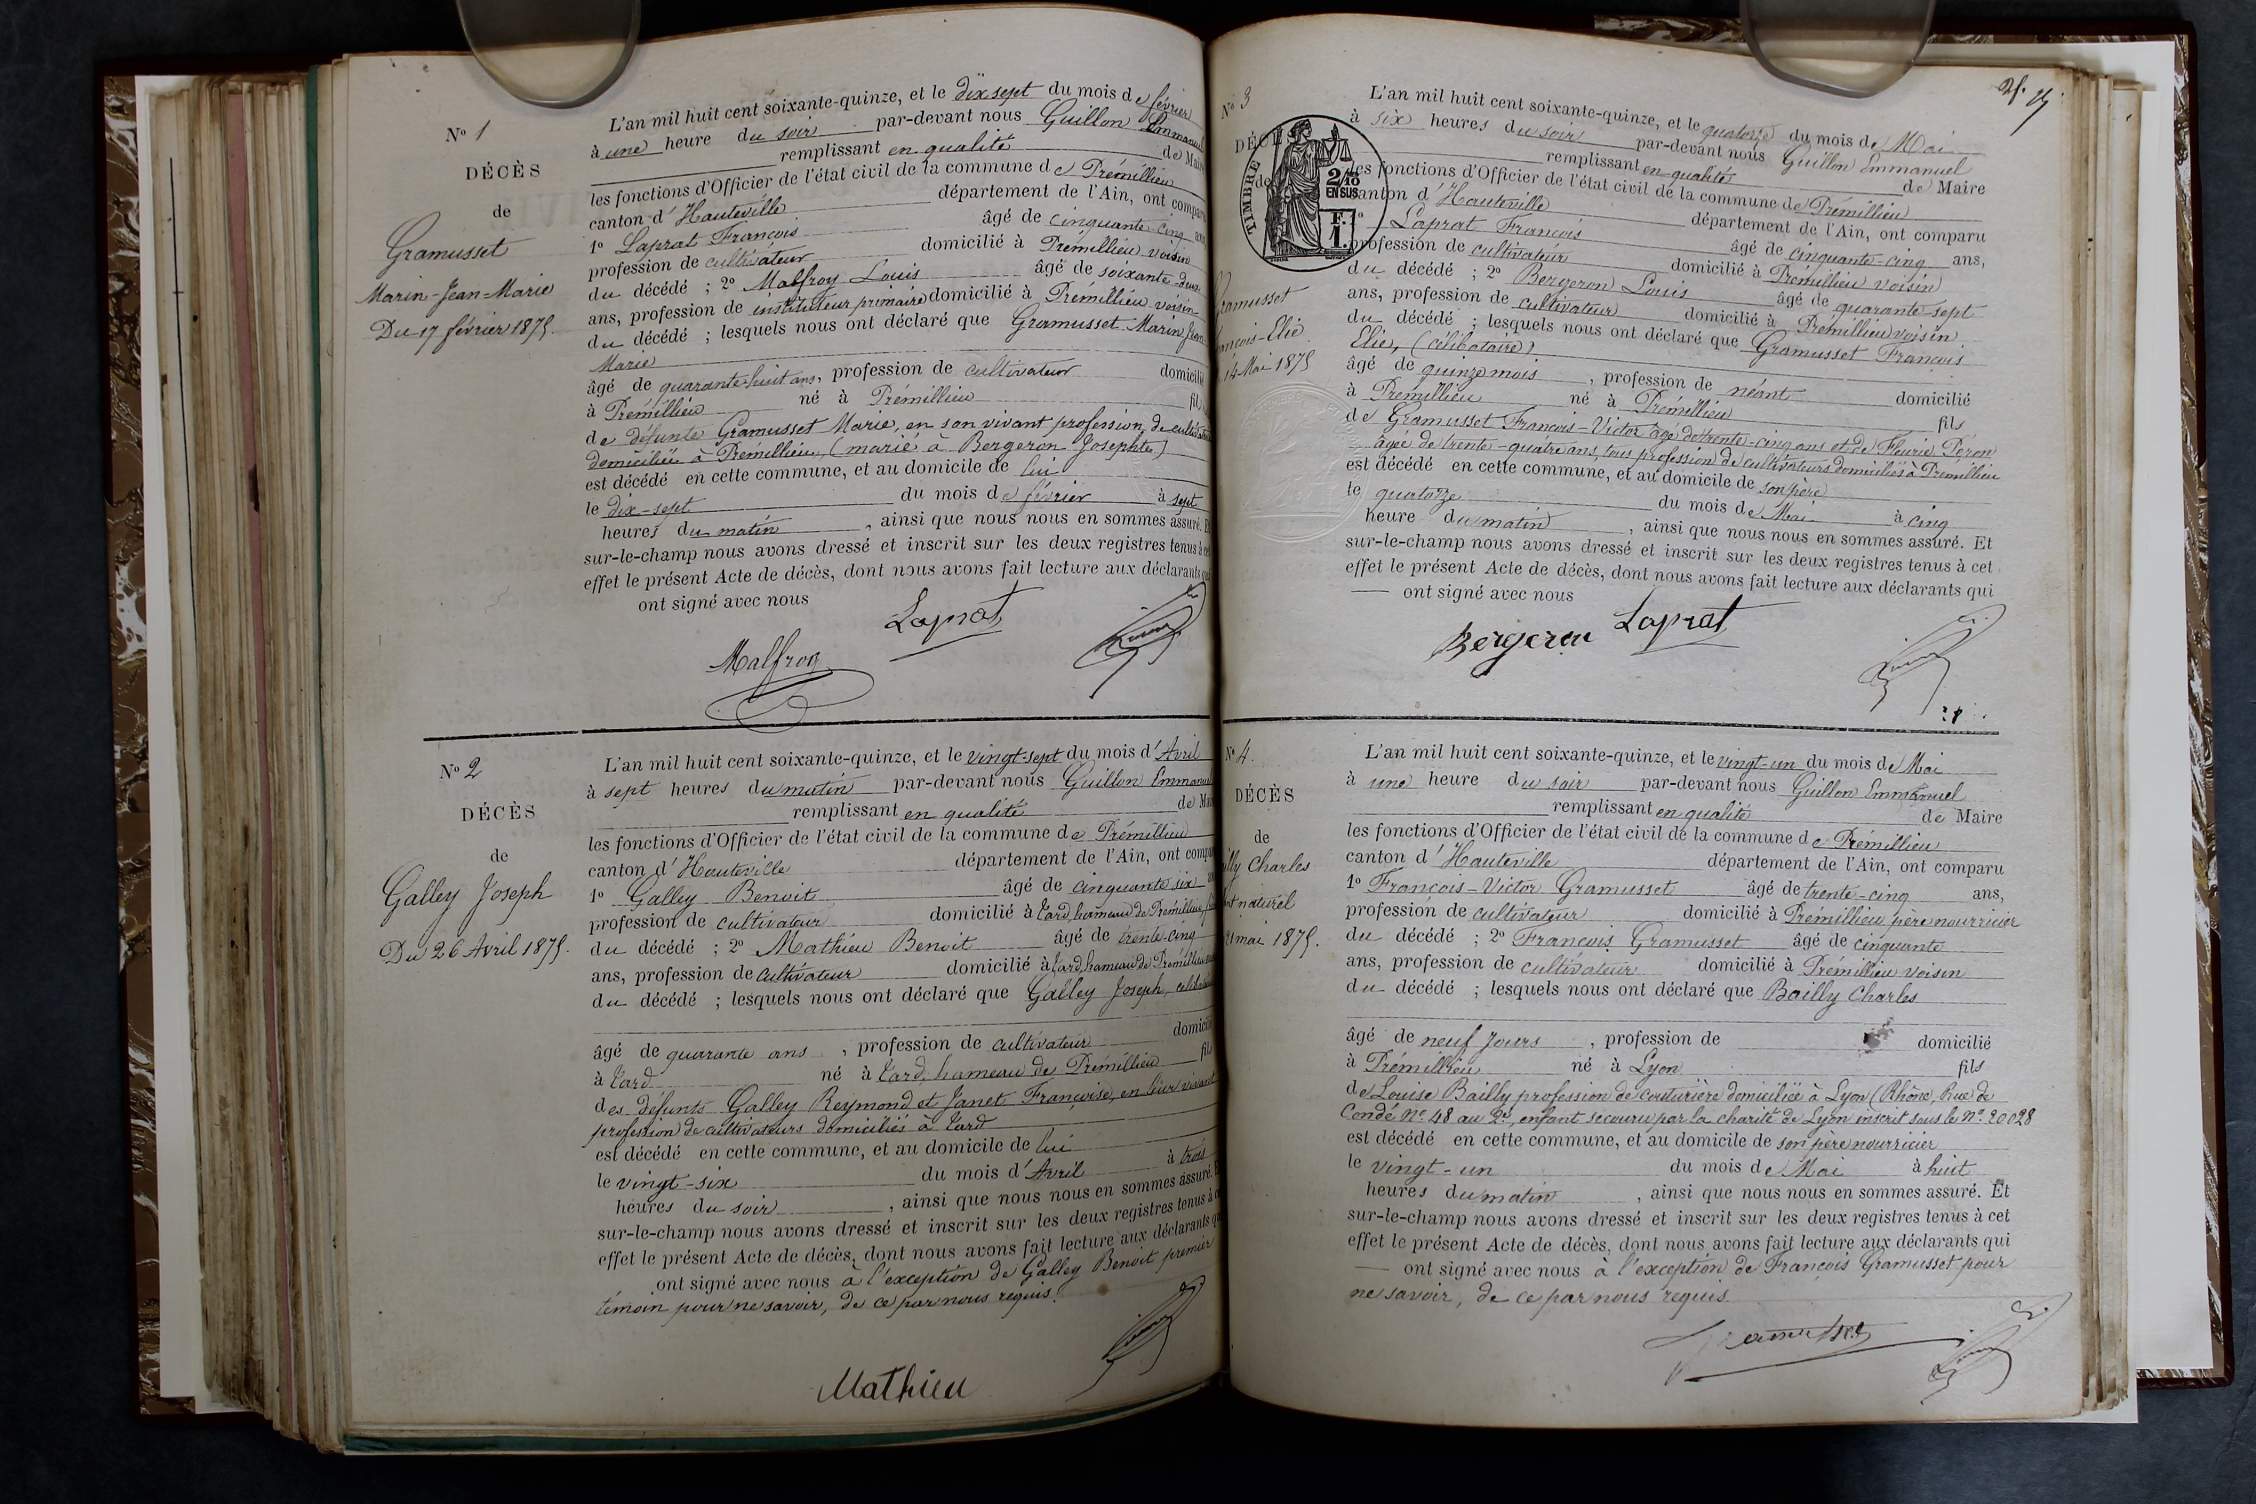 Nº 1
DÉCÈS
de
Gramusset
Marin-Jean-Marie
Du 17 février 1875.
L'an mil huit cent soixante-quinze, et le dix sept du mois de février
à une heure du soir par-devant nous Guillon Emmanuel
remplissant en qualité de Maire
les fonctions d'Officier de l'état civil de la commune de Prémillieu
canton d'Hauteville département de l'Ain, ont comparu
1º Laprat François âgé de cinquante-cinq ans
profession de cultivateur domicilié à Prémillieu voisin
du décédé ; 2º Malfroy Louis âgé de soixante-deux
ans, profession de instituteur primaire domicilié à Prémillieu voisin
du décédé ; lesquels nous ont déclaré que Gramusset Marin Jean-
Marie
âgé de quarante-huit ans, profession de cultivateur domicilié
à Prémillieu né à Prémillieu fils
de défunte Gramusset Marie, en son vivant profession de cultivateur
domiciliée à Prémillieu, (marié à Bergeron Josephte)
est décédé en cette commune, et au domicile de lui
le dix-sept du mois de février à sept
heures du matin, ainsi que nous nous en sommes assuré. Et
sur-le-champ nous avons dressé et inscrit sur les deux registres tenus à cet
effet le présent Acte de décès, dont nous avons fait lecture aux déclarants qui
ont signé avec nous
Laprat
Malfroy
Nº 2
DÉCÈS
de
Galley Joseph
Du 26 Avril 1875.
L'an mil huit cent soixante-quinze, et le vingt-sept du mois d'Avril
à sept heures du matin par-devant nous Guillon Emmanuel
remplissant en qualité de Maire
les fonctions d'Officier de l'état civil de la commune de Prémillieu
canton d'Hauteville département de l'Ain, ont comparu
1º Galley Benoit âgé de cinquante six
profession de cultivateur domicilié à Tard, hameau de Prémillieu
du décédé ; 2º Mathieu Benoit âgé de trente-cinq
ans, profession de cultivateur domicilié à Tard, hameau de Prémillieu
du décédé ; lesquels nous ont déclaré que Galley Joseph, célibataire
âgé de quarante ans, profession de cultivateur domicilié
à Tard né à Tard, hameau de Prémillieu fils
des défunts Galley Reymond et Janet Françoise, en leur vivant
profession de cultivateurs domiciliés à Tard
est décédé en cette commune, et au domicile de lui
le vingt-six du mois d'Avril à trois
heures du soir, ainsi que nous nous en sommes assuré. Et
sur-le-champ nous avons dressé et inscrit sur les deux registres tenus à cet
effet le présent Acte de décès, dont nous avons fait lecture aux déclarants qui
ont signé avec nous à l'exception de Galley Benoit premier
témoin pour ne savoir, de ce par nous requis.
Mathieu
Nº 3
DÉCÈS
de
TIMBRE
2/10
EN SUS
F.
1.
Gramusset
François-Elie
14 Mai 1875
L'an mil huit cent soixante-quinze, et le quatorze du mois de Mai
à six heures du soir par-devant nous Guillon Emmanuel
remplissant en qualité de Maire
les fonctions d'Officier de l'état civil de la commune de Prémillieu
canton d'Hauteville département de l'Ain, ont comparu
1º Laprat François âgé de cinquante-cinq ans,
profession de cultivateur domicilié à Prémillieu voisin
du décédé ; 2º Bergeron Louis âgé de quarante-sept
ans, profession de cultivateur domicilié à Prémillieu voisin
du décédé ; lesquels nous ont déclaré que Gramusset François
Elie, (célibataire)
âgé de quinze mois, profession de néant domicilié
à Prémillieu né à Prémillieu fils
de Gramusset François-Victor âgé de trente-cinq ans et de Fleurie Péron
âgée de trente-quatre ans, tous profession de cultivateurs domiciliés à Prémillieu
est décédé en cette commune, et au domicile de son père
le quatorze du mois de Mai à cinq
heure du matin, ainsi que nous nous en sommes assuré. Et
sur-le-champ nous avons dressé et inscrit sur les deux registres tenus à cet
effet le présent Acte de décès, dont nous avons fait lecture aux déclarants qui
ont signé avec nous
Bergeron Laprat
Nº 4.
DÉCÈS
de
Bailly Charles
enfant naturel
21 mai 1875.
L'an mil huit cent soixante-quinze, et le vingt-un du mois de Mai
à une heure du soir par-devant nous Guillon Emmanuel
remplissant en qualité de Maire
les fonctions d'Officier de l'état civil de la commune de Prémillieu
canton d'Hauteville département de l'Ain, ont comparu
1º François-Victor Gramusset âgé de trente-cinq ans,
profession de cultivateur domicilié à Prémillieu père nourricier
du décédé ; 2º François Gramusset âgé de cinquante
ans, profession de cultivateur domicilié à Prémillieu voisin
du décédé ; lesquels nous ont déclaré que Bailly Charles
âgé de neuf jours, profession de domicilié
à Prémillieu né à Lyon fils
de Louise Bailly profession de couturière domiciliée à Lyon (Rhône), Rue de
Condé Nº 48 au 2e, enfant secouru par la charité de Lyon inscrit sous le Nº 20028
est décédé en cette commune, et au domicile de son père nourricier
le vingt-un du mois de Mai à huit
heures du matin, ainsi que nous nous en sommes assuré. Et
sur-le-champ nous avons dressé et inscrit sur les deux registres tenus à cet
effet le présent Acte de décès, dont nous avons fait lecture aux déclarants qui
ont signé avec nous à l'exception de François Gramusset pour
ne savoir, de ce par nous requis.
Gramusset